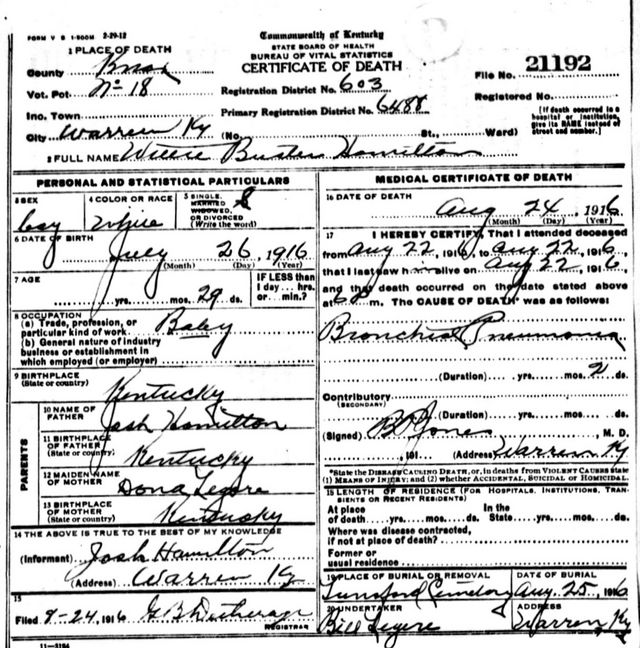 FORM V S 1-500M 2-29-12
Commonwealth of Kentucky
STATE BOARD OF HEALTH
BUREAU OF VITAL STATISTICS
CERTIFICATE OF DEATH
1 PLACE OF DEATH
County Knox
Vot. Pct. No 18
Inc. Town
City Warren Ky
Registration District No. 603
Primary Registration District No. 6488
File No. 21192
Registered No.
[If death occurred in a hospital or institution, give its NAME instead of street and number.]
(No. St., Ward)
2 FULL NAME Willie Buster Hamilton
PERSONAL AND STATISTICAL PARTICULARS
3 SEX boy
4 COLOR OR RACE White
5 SINGLE, MARRIED WIDOWED, OR DIVORCED (Write the word) S
6 DATE OF BIRTH July 26, 1916
(Month) (Day) (Year)
7 AGE yrs. mos. 29 ds.
IF LESS than 1 day... hrs. or... min.?
8 OCCUPATION
(a) Trade, profession, or particular kind of work Baby
(b) General nature of industry business or establishment in which employed (or employer)
9 BIRTHPLACE (State or country) Kentucky
PARENTS
10 NAME OF FATHER Josh Hamilton
11 BIRTHPLACE OF FATHER (State or country) Kentucky
12 MAIDEN NAME OF MOTHER Dona Legere
13 BIRTHPLACE OF MOTHER (State or country) Kentucky
14 THE ABOVE IS TRUE TO THE BEST OF MY KNOWLEDGE
(Informant) Josh Hamilton
(Address) Warren Ky
15
Filed 8-24, 1916 G B
REGISTRAR
11-3184
MEDICAL CERTIFICATE OF DEATH
16 DATE OF DEATH Aug 24, 1916
(Month) (Day) (Year)
17 I HEREBY CERTIFY, That I attended deceased
from Aug 22, 1916, to Aug 22, 1916,
that I last saw him alive on Aug 22, 1916,
and that death occurred on the date stated above
at 6 P m. The CAUSE OF DEATH* was as follows:
Bronchial Pneumonia
(Duration) yrs. mos. 2 ds.
Contributory
(SECONDARY)
(Duration) yrs. mos. ds.
(Signed) Jones, M. D.
, 191 (Address) Warren Ky
*State the DISEASE CAUSING DEATH, or, in deaths from VIOLENT CAUSES state (1) MEANS OF INJURY; and (2) whether ACCIDENTAL, SUICIDAL or HOMICIDAL.
18 LENGTH OF RESIDENCE (FOR HOSPITALS, INSTITUTIONS, TRANSIENTS OR RECENT RESIDENTS)
At place of death yrs. mos. ds. In the State yrs. mos. ds.
Where was disease contracted, if not at place of death?
Former or usual residence
19 PLACE OF BURIAL OR REMOVAL Lunsford Cemetery
DATE OF BURIAL Aug. 25, 1916
20 UNDERTAKER Bill Legere
ADDRESS Warren Ky